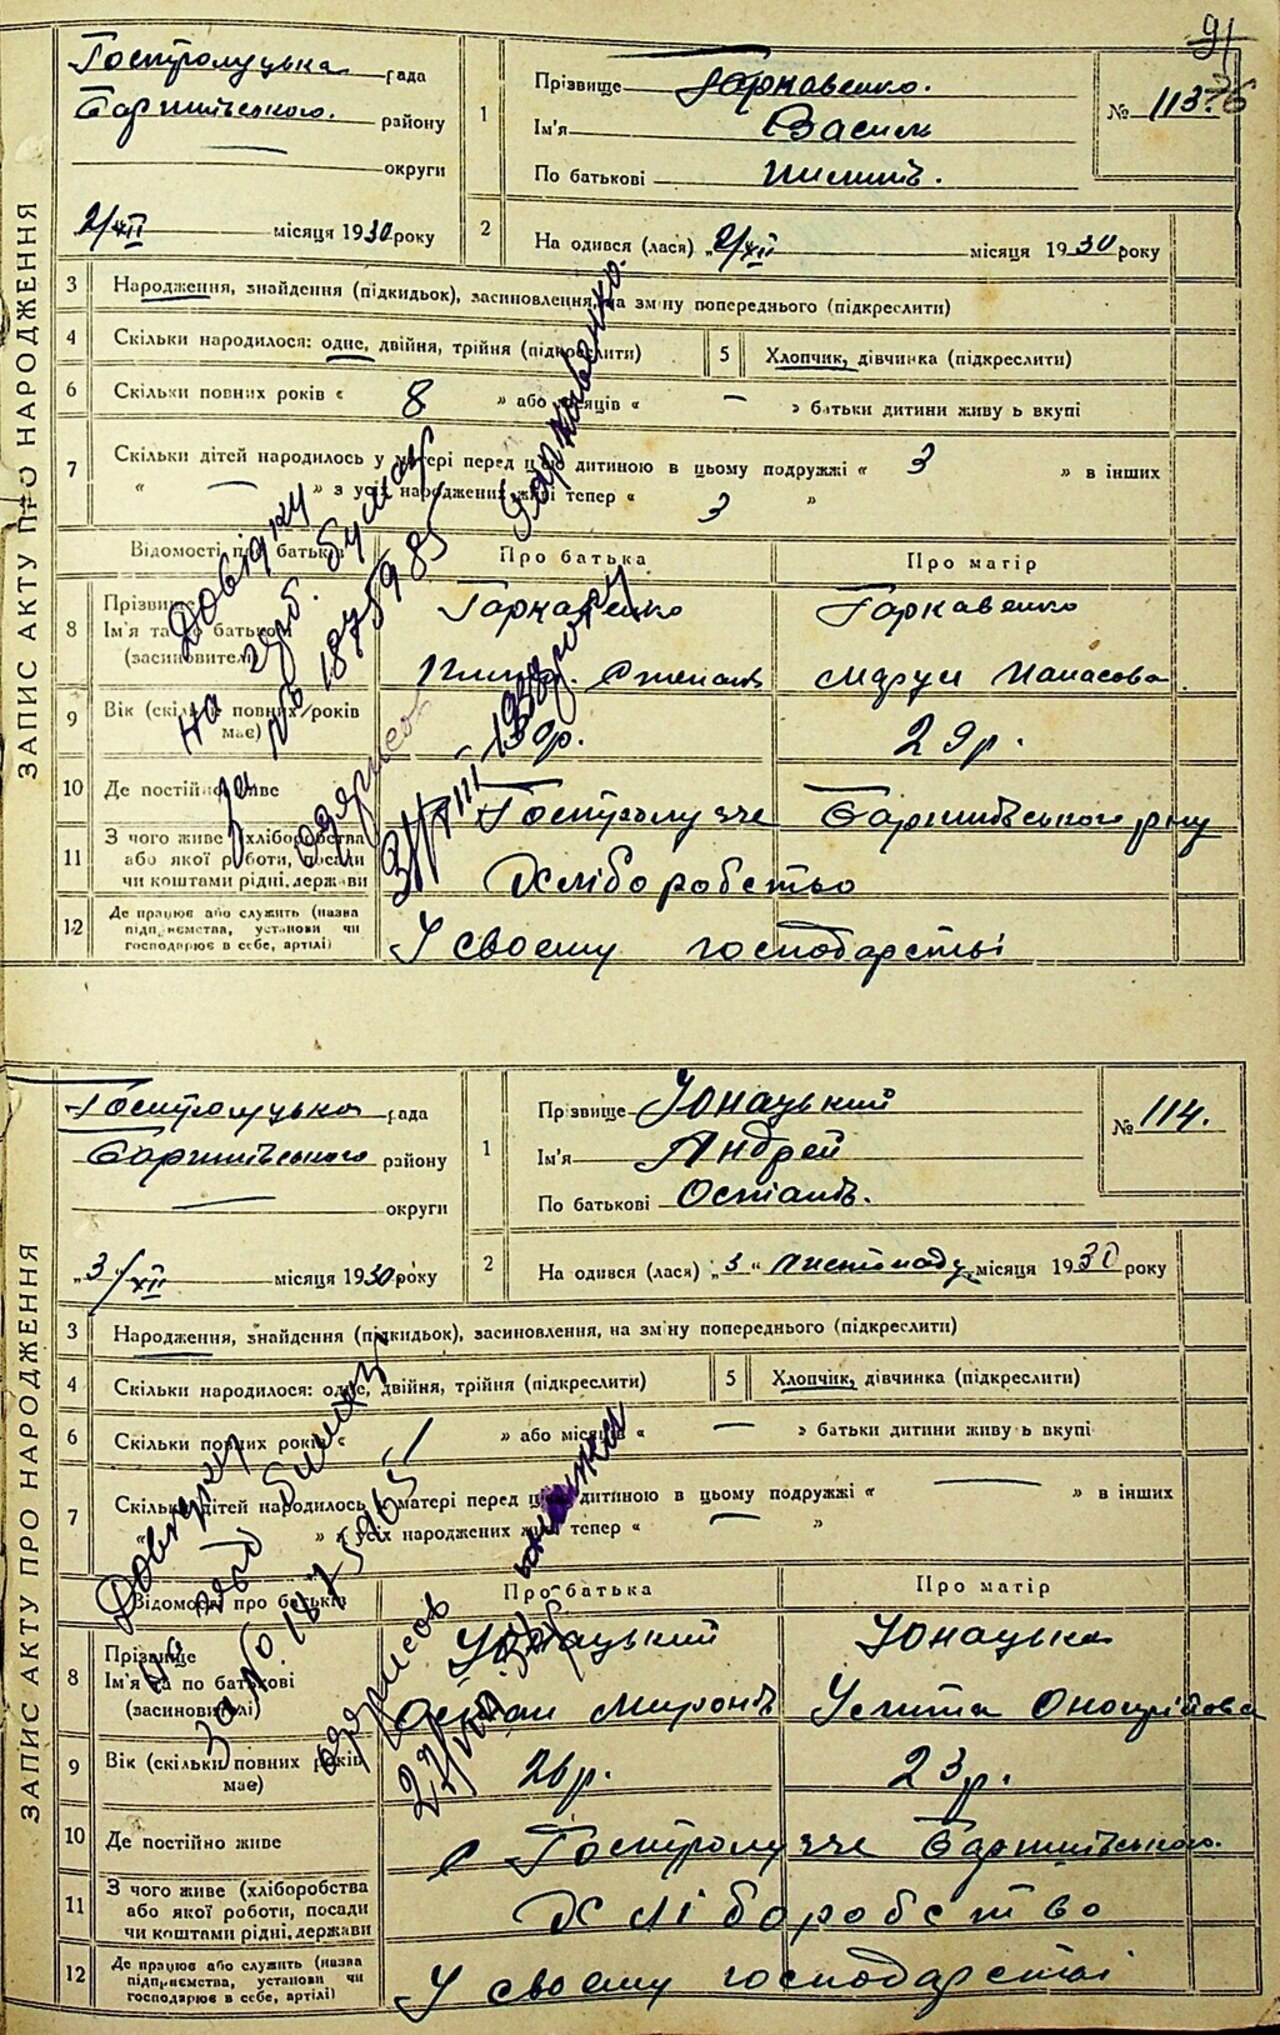 91
76
ЗАПИС АКТУ ПРО НАРОДЖЕННЯ
Гостролуцька рада
Баришівського району
округи
2/XII місяця 1930 року
1
Прізвище Гаркавенко.
Ім'я Василь
По батькові
№ 113.
2
На одився (лася) „2/XII місяця 1930 року
3 Народження, знайдення (підкидьок), засиновлення, на зміну попереднього (підкреслити)
4 Скільки народилося: одне, двійня, трійня (підкреслити)
5 Хлопчик, дівчинка (підкреслити)
6 Скільки повних років « 8 » або місяців « — » батьки дитини живуть вкупі
7 Скільки дітей народилось у матері перед цією дитиною в цьому подружжі « 3 » в інших
« — » з усіх народжених живі тепер « 3 »
Відомості про батьків
Про батька
Про матір
8 Прізвище
Ім'я та по батькові
(засиновителі)
Гаркавенко
Степанів
Гаркавенко
Панасова
9 Вік (скільки повних років має)
30р.
29р.
10 Де постійно живе
Гостролуччє Баришівського р-ну
11 З чого живе (хліборобства
або якої роботи, посади
чи коштами рідні, держави
Хліборобство
12 Де працює або служить (назва
підприємства, установи чи
господарює в себе, артілі)
У своєму господарстві
Довідку
на
за № 1875985
одержав
Гаркавенко.
ЗАПИС АКТУ ПРО НАРОДЖЕННЯ
Гостролуцька рада
Баришівського району
округи
„3/XII місяця 1930 року
1
Прізвище Юнацький
Ім'я Андрей
По батькові Остапів.
№ 114.
2
На одився (лася) „3“ листопаду місяця 1930 року
3 Народження, знайдення (підкидьок), засиновлення, на зміну попереднього (підкреслити)
4 Скільки народилося: одне, двійня, трійня (підкреслити)
5 Хлопчик, дівчинка (підкреслити)
6 Скільки повних років « » або місяців « — » батьки дитини живуть вкупі
7 Скільки дітей народилось у матері перед цією дитиною в цьому подружжі « — » в інших
» з усіх народжених живі тепер « — »
Відомості про батьків
Про батька
Про матір
8 Прізвище
Ім'я та по батькові
(засиновителі)
Юнацький
Остап Миронів
Юнацька
Онопрійова
9 Вік (скільки повних років має)
26р.
23р.
10 Де постійно живе
с Гостролуччє Баришівського.
11 З чого живе (хліборобства
або якої роботи, посади
чи коштами рідні, держави
Хліборобство
12 Де працює або служить (назва
підприємства, установи чи
господарює в себе, артілі)
У своєму господарстві
Довідку
на
за №